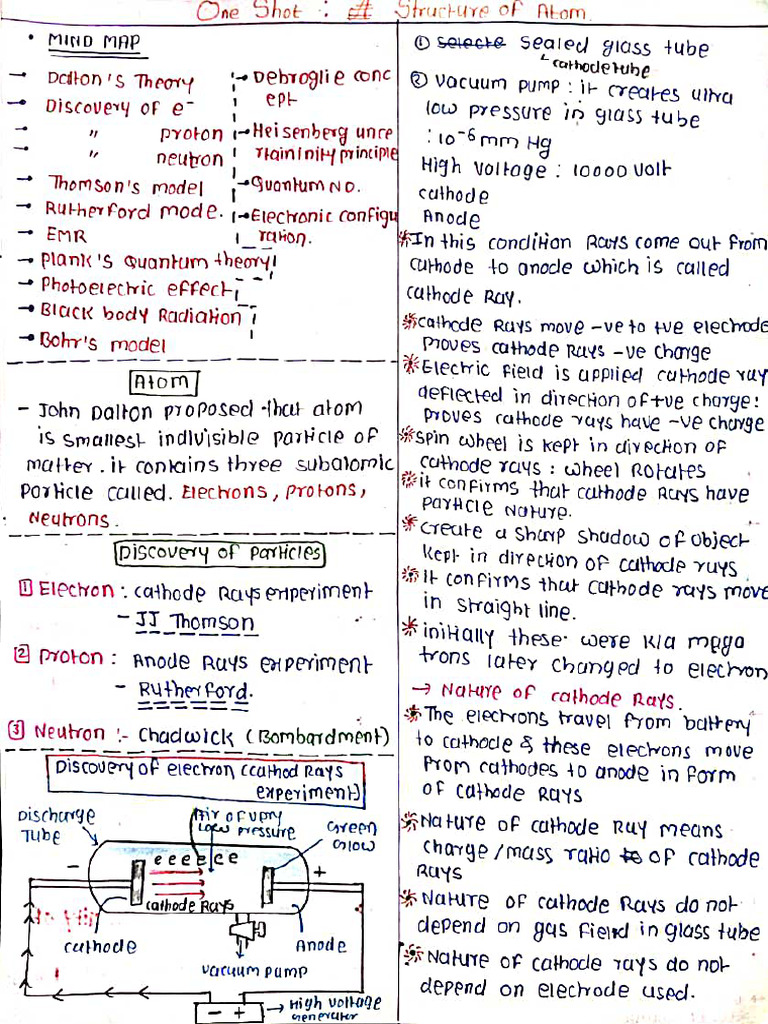 One Shot : Structure of Atom.
• MIND MAP
→ Dalton's Theory
→ Discovery of e⁻
→ " proton
→ " neutron
→ Thomson's model
→ Rutherford mode.
→ EMR
→ Plank's Quantum theory
→ Photoelectric effect
→ Black body Radiation
→ Bohr's model
→ Debroglie conc
ept
→ Heisenberg unce
rtaininity principle
→ Quantum NO.
→ Electronic configu
ration.
Atom
- John Dalton proposed that atom
is smallest indivisible particle of
matter. it contains three subatomic
particle called. Electrons, protons,
Neutrons.
Discovery of particles
1 Electron : cathode Rays experiment
- JJ Thomson
2 proton : Anode Rays experiment
- Rutherford.
3 Neutron :- Chadwick (Bombardment)
Discovery of electron (cathod Rays
experiment)
Discharge
Tube
Air of very
low pressure
Green
Glow
- e e e e c e +
cathode Rays
cathode
Anode
vacuum pump
- +
→ High voltage
generator
① selecte sealed glass tube
cathode tube
② vacuum pump : it creates ultra
low pressure in glass tube
: 10⁻⁶ mm Hg
High voltage : 10000 volt
cathode
Anode
* In this condition Rays come out from
cathode to anode which is called
cathode Ray.
* cathode Rays move -ve to +ve electrode
proves cathode Rays -ve charge
* Electric field is applied cathode ray
deflected in direction of +ve charge :
proves cathode rays have -ve charge
* spin wheel is kept in direction of
cathode rays : wheel Rotates
* it confirms that cathode Rays have
particle nature.
* create a sharp shadow of object
kept in direction of cathode rays
* It confirms that cathode rays move
in straight line.
* initially these were k/a
trons later changed to electron
→ Nature of cathode Rays.
* The electrons travel from battery
to cathode & these electrons move
from cathodes to anode in form
of cathode Rays
* Nature of cathode Ray means
charge/mass ratio of cathode
Rays
* Nature of cathode Rays do not
depend on gas field in glass tube
* Nature of cathode rays do not
depend on electrode used.